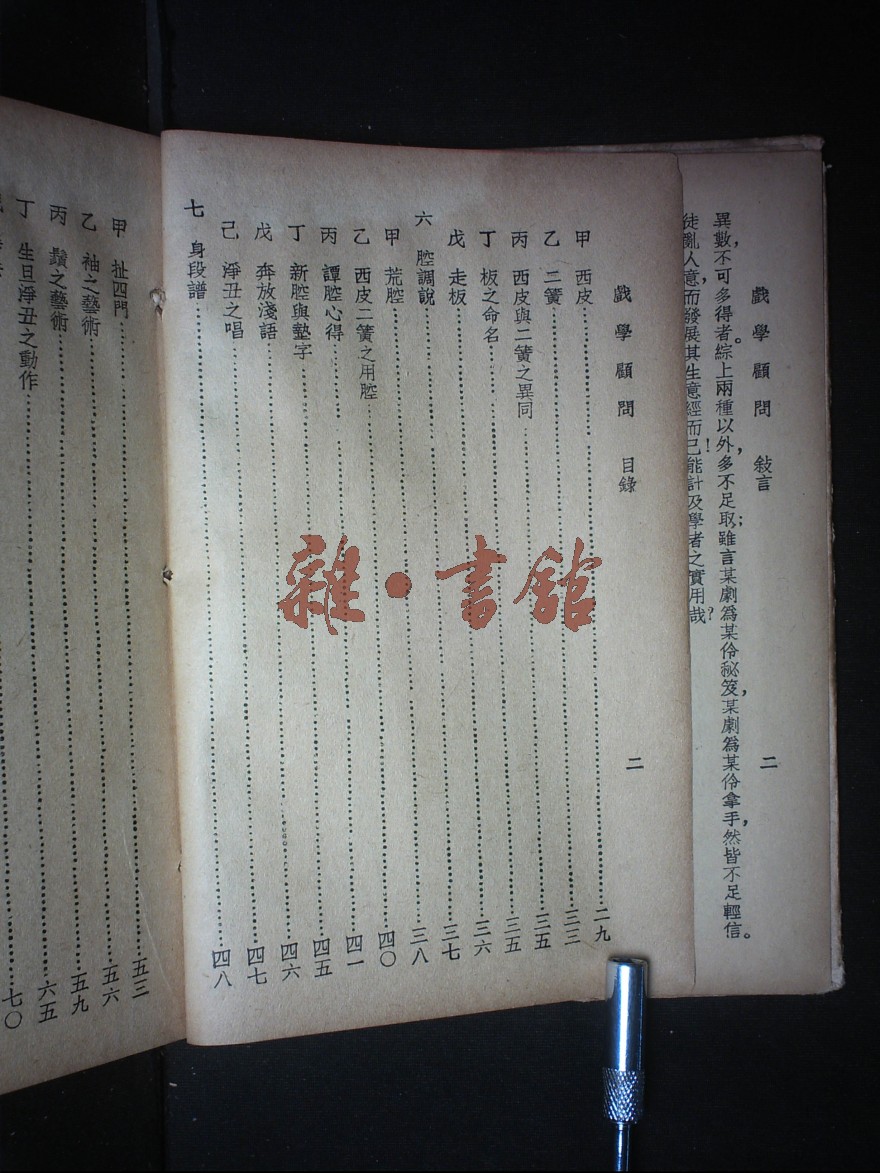 戲學顧問 敍言 二
異數,不可多得者。綜上兩種以外,多不足取;雖言某劇爲某伶秘笈,某劇爲某伶拿手,然皆不足輕信。
徒亂人意,而發展其生意經而已!能計及學者之實用哉?
戲學顧問 目錄 二
甲 西皮……二九
乙 二簧……三三
丙 西皮與二簧之異同……三五
丁 板之命名……三五
戊 走板……三六
六 腔調說……三七
甲 荒腔……三八
乙 西皮二簧之用腔……四〇
丙 譚腔心得……四一
丁 新腔與墊字……四五
戊 奔放淺語……四六
己 淨丑之唱……四七
七 身段譜……四八
甲 扯四門……五三
乙 袖之藝術……五六
丙 鬚之藝術……五九
丁 生旦淨丑之動作……六五
七〇
雜·書館